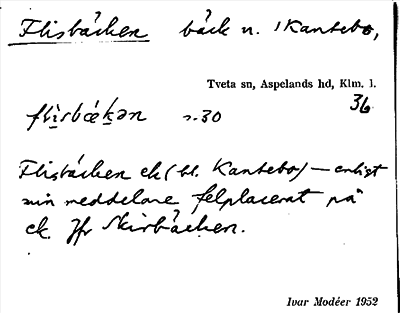 Flisbäcken bäck n. i Kantebo,
Tveta sn, Aspelands hd, Klm. l.
36
flìsbækən n. 30
Flisbäcken ek (bl. Kantebo) — enligt
min meddelare felplacerat på
ek. Jfr Skirbäcken.
Ivar Modéer 1952